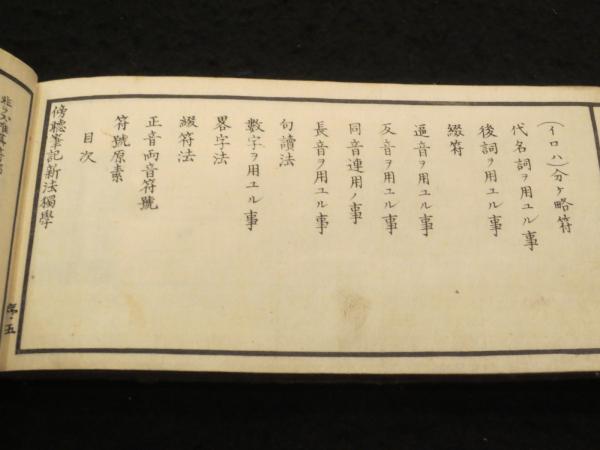 序・五
傍聴筆記新法獨學
目次
符號原素
正音両音符號
綴符法
畧字法
數字ヲ用ユル事
句讀法
長音ヲ用ユル事
同音連用ノ事
反音ヲ用ユル事
逼音ヲ用ユル事
綴符
後詞ヲ用ユル事
代名詞ヲ用ユル事
(イロハ)分ケ略符